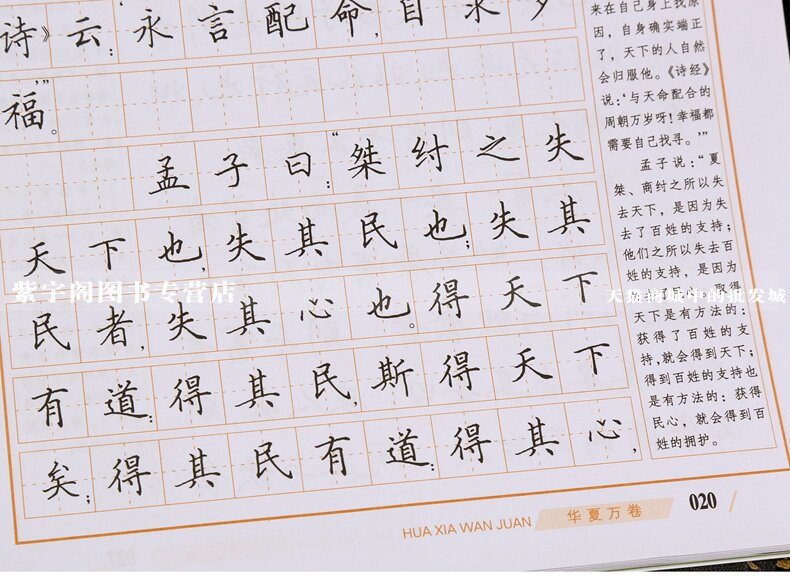 诗》云：‘永言配命，自求多
福。’”
孟子曰：“桀纣之失
天下也，失其民也；失其
民者，失其心也。得天下
有道：得其民，斯得天下
矣；得其民有道：得其心，
来在自己身上找原
因，自身确实端正
了，天下的人自然
会归服他。《诗经》
说：‘与天命配合的
周朝万岁呀！幸福都
需要自己找寻。’”
孟子说：“夏
桀、商纣之所以失
去天下，是因为失
去了百姓的支持；
他们之所以失去百
姓的支持，是因为
取得
天下是有方法的：
获得了百姓的支
持，就会得到天下；
得到百姓的支持也
是有方法的：获得
民心，就会得到百
姓的拥护。
紫宇阁图书专营店
天猫商城中的批发城
HUA XIA WAN JUAN
华夏万卷
020